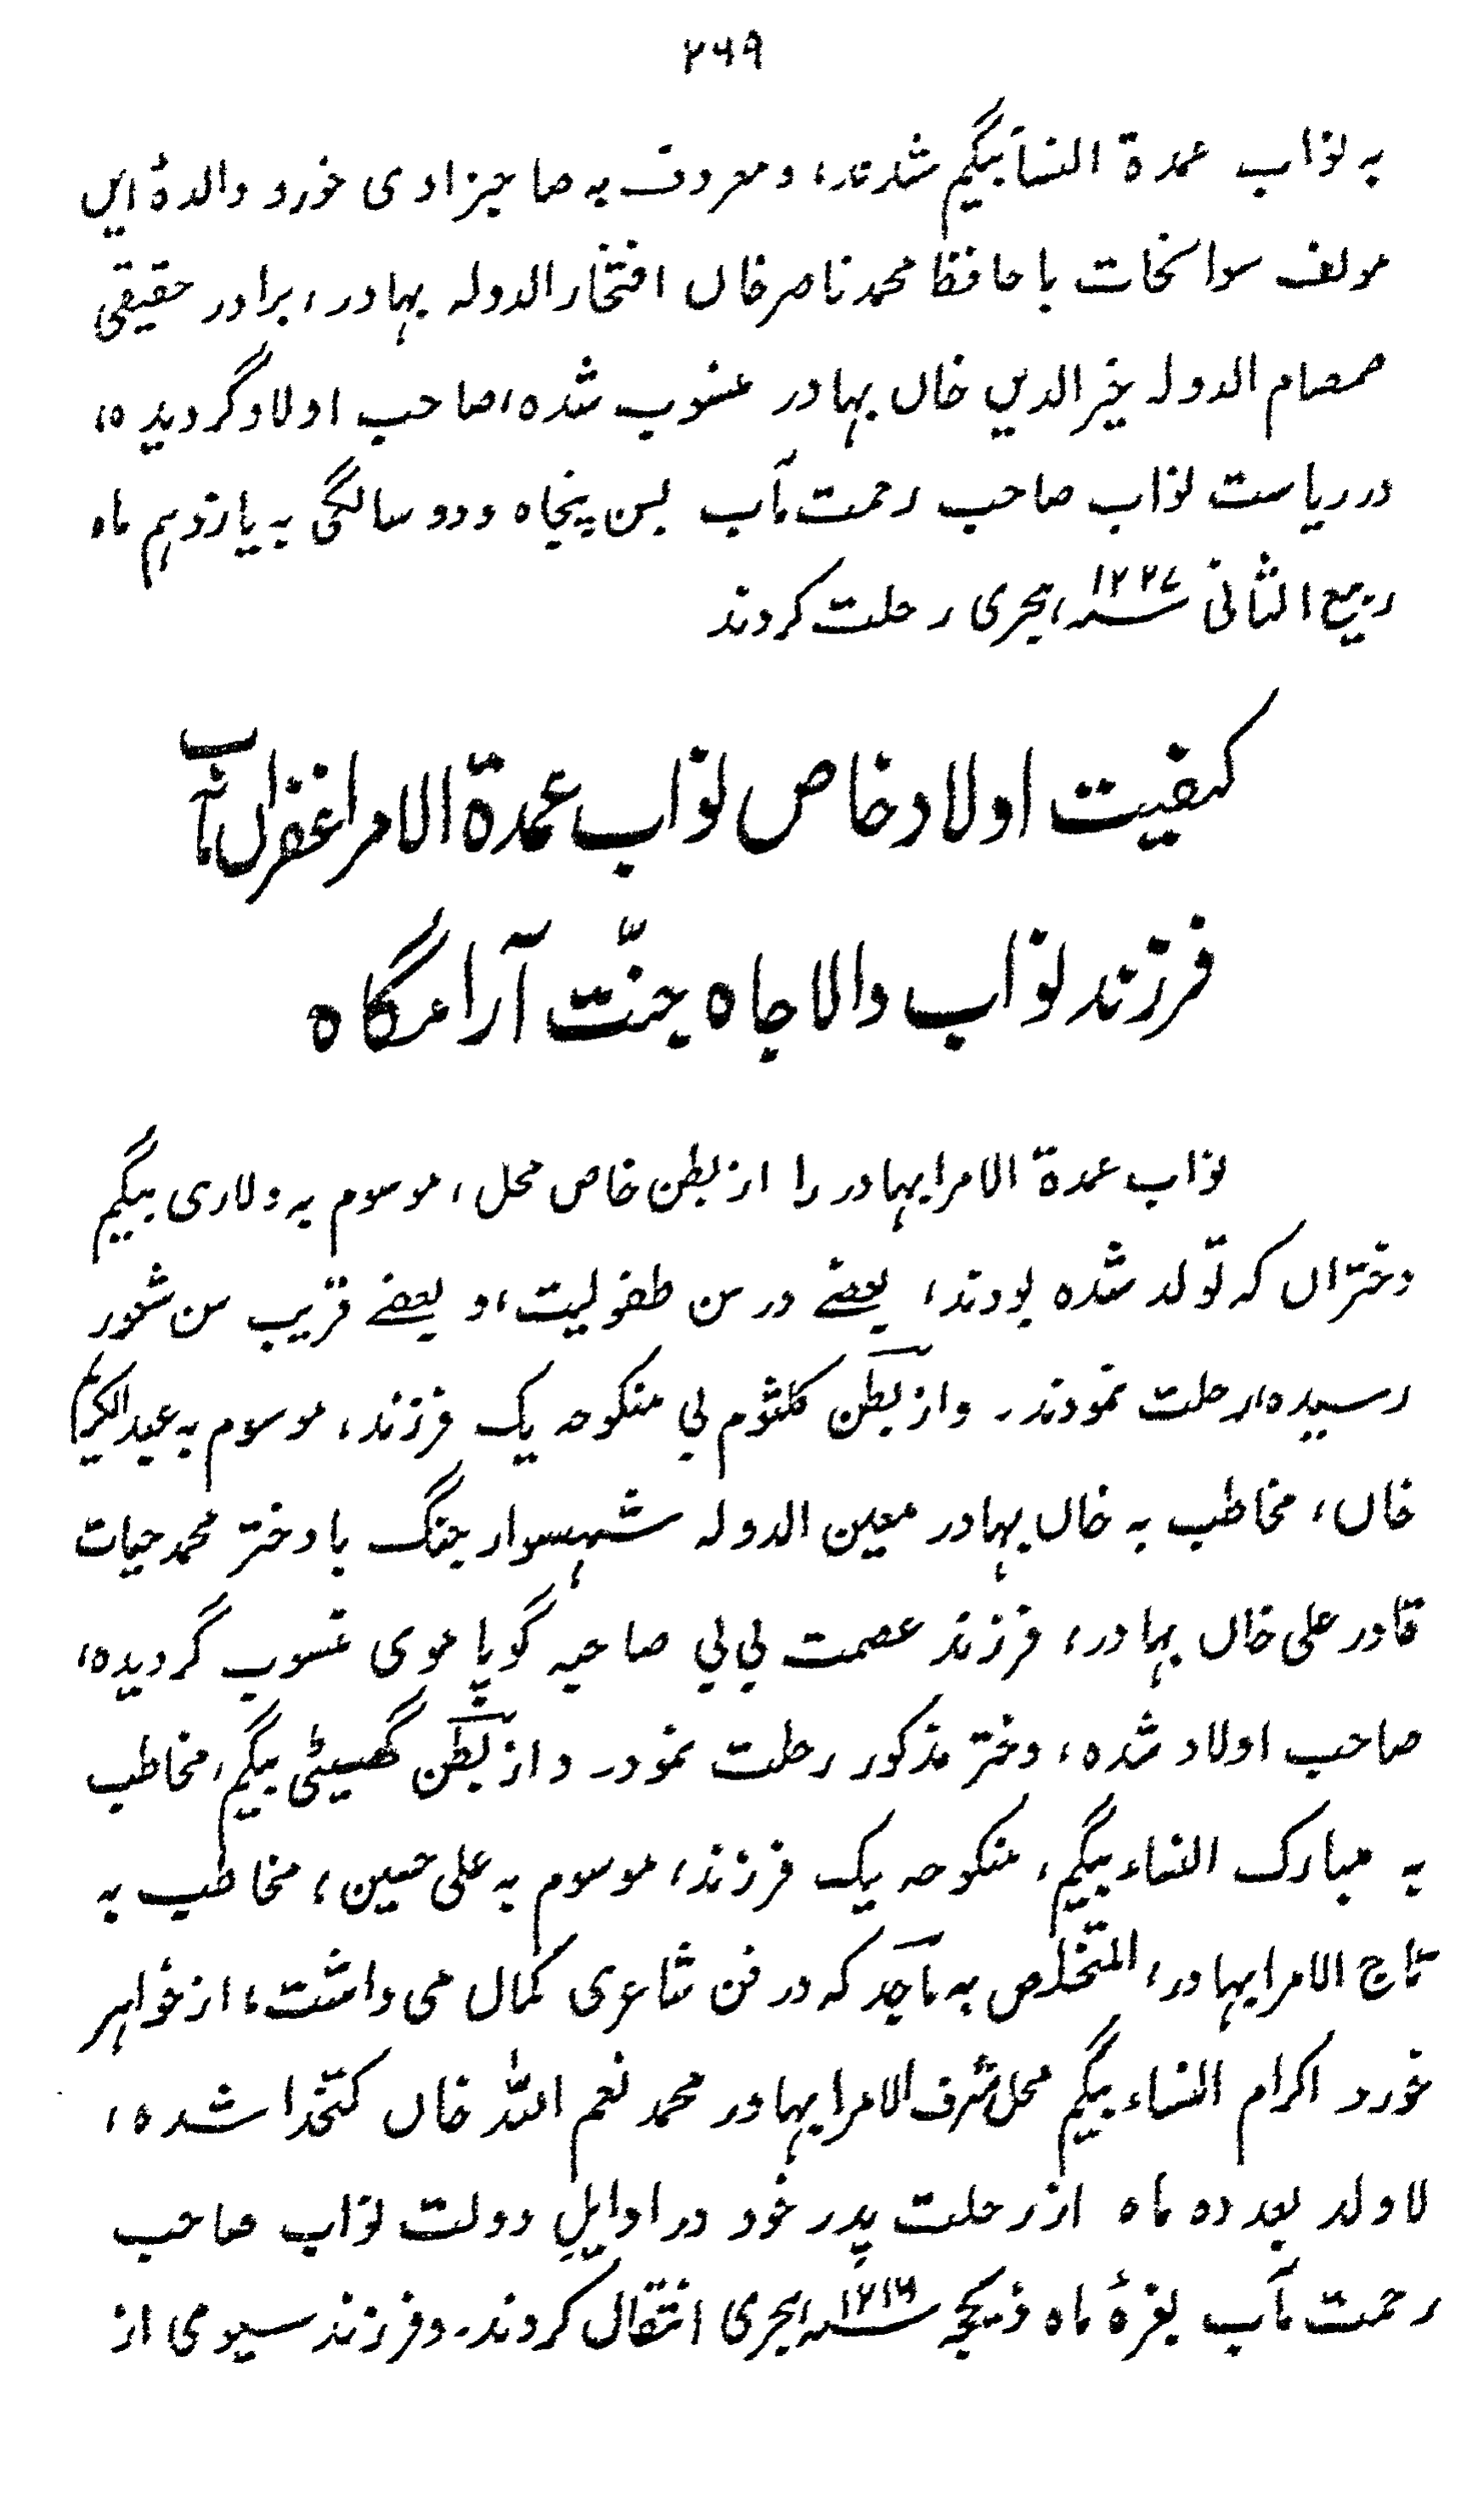 ۲۶۹
به نواب عمدة النسأبیگم شدند، و معروف به صاحبزادی خورد والدهٔ این
مولف سوانحات باحافظ محمد ناصر خاں افتخارالدوله بهادر، برادر حقیقی
صمصام الدوله خیر الدین خاں بهادر منسوب شده، صاحب اولاد گردیده،
در ریاست نواب صاحب رحمت مآب بسن پنجاه و دو سالگی به یازدهم ماه
ربیع الثانی ۱۲۳۷ سنه ہجری رحلت کردند
کیفیت اولاد خاص نواب عمدة الامرا غفراں مآب
فرزند نواب والا جاه جنّت آرامگاه
نواب عمدة الامرا بهادر را از بطن خاص محل، موسوم به دلاری بیگم
دختراں که تولد شده بودند، بعضے در سن طفولیت، و بعضے قریب سن شعور
رسیده، رحلت نمودند۔ و از بطن کلثوم بی منکوحه یک فرزند، موسوم به عبدالکریم
خاں، مخاطب به خاں بهادر معین الدوله شهسوار جنگ با دختر محمد حیات
قادر علی خاں بهادر، فرزند عصمت بی بی صاحبه گوپاموی منسوب گردیده،
صاحب اولاد شده، دختر مذکور رحلت نمود۔ و از بطن گھسیٹی بیگم، مخاطب
به مبارک النساء بیگم، منکوحه یک فرزند، موسوم به علی حسین، مخاطب به
تاج الامرا بهادر، المتخلص به ماجد که در فن شاعری کمال می داشت، از خواهر
خورد اکرام النساء بیگم محل شرف الامرا بهادر محمد نعم الله خاں کتخدا شده،
لاولد بعد ده ماه از رحلت پدر خود در اوایل دولت نواب صاحب
رحمت مآب بغرهٔ ماه ذیحجه ۱۲۱۶ سنه ہجری انتقال کردند۔ و فرزند سیومی از